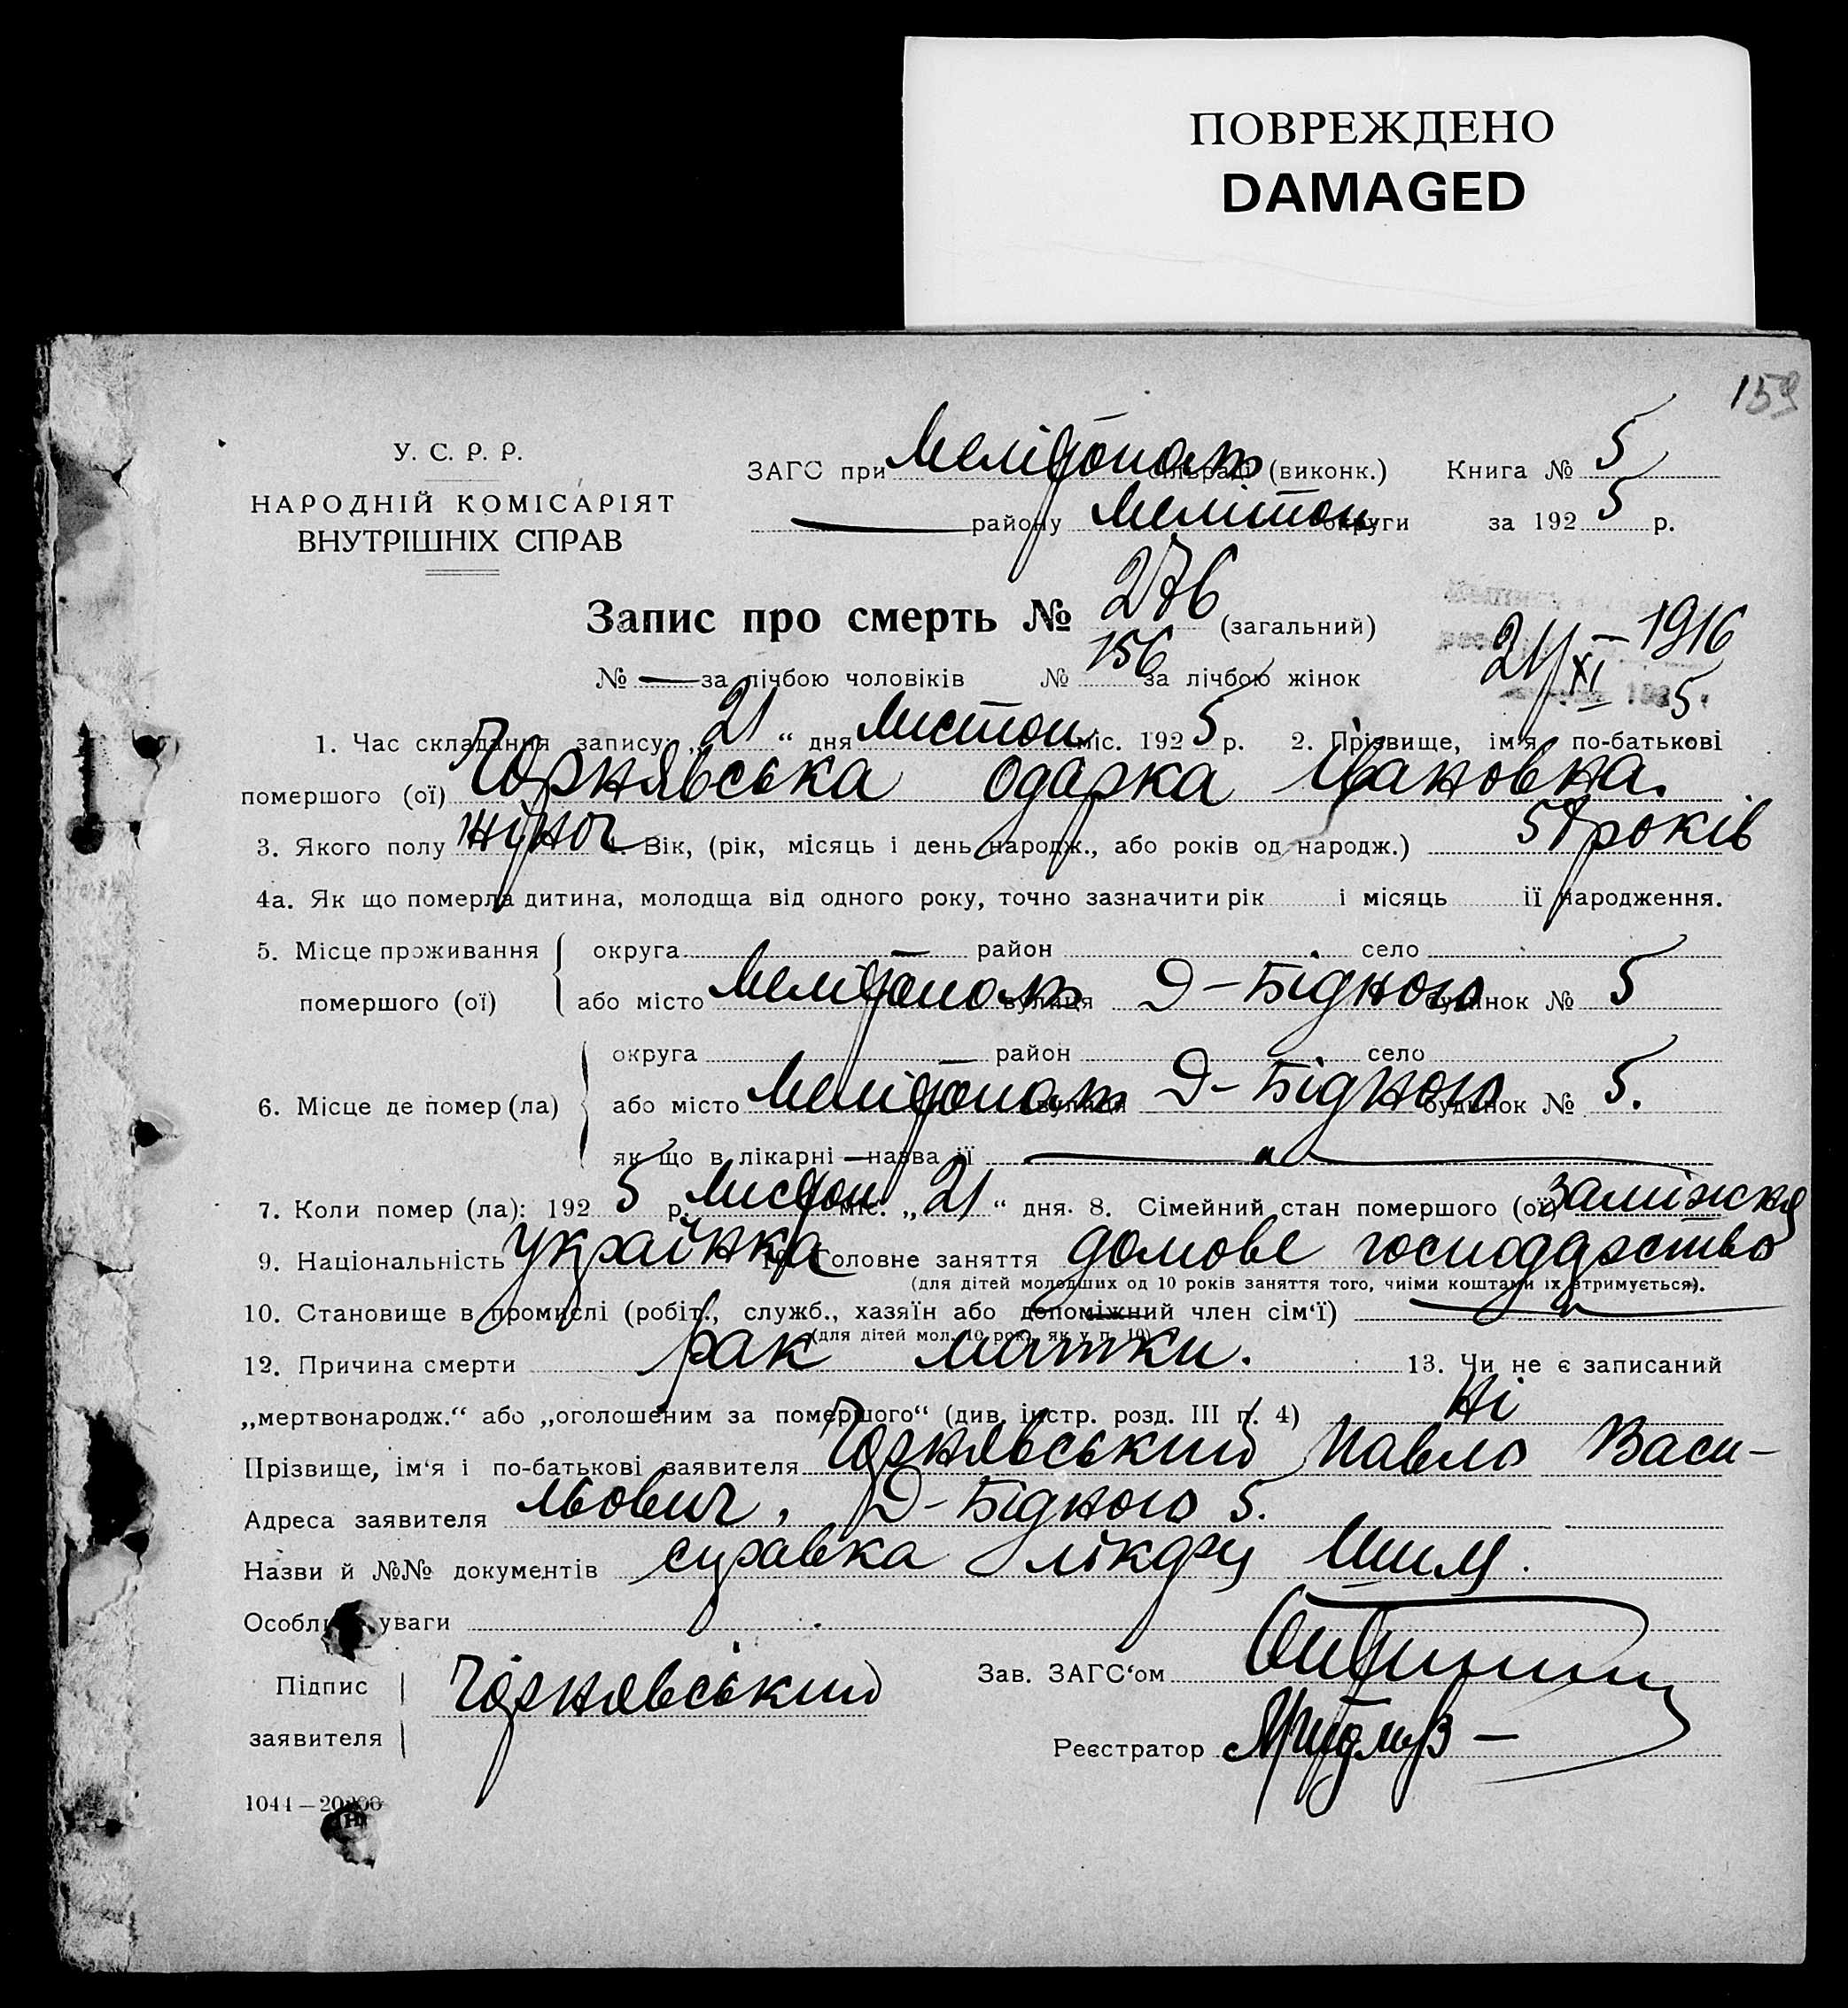 ПОВРЕЖДЕНО
DAMAGED
159
У. С. Р. Р.
НАРОДНІЙ КОМІСАРІЯТ
ВНУТРІШНІХ СПРАВ
ЗАГС при Мелітополь сільраді (виконк.) Книга № 5
— району Мелітоп округи за 1925 р.
Запис про смерть № 276 (загальний)
№ — за лічбою чоловіків № 156 за лічбою жінок
21/XI – 1916
5
1. Час складання запису: „21“ дня Листоп. міс. 1925 р. 2. Прізвище, ім'я, по-батькові
помершого (ої) Чорнявська Одарка Івановна.
3. Якого полу жіноч 4. Вік, (рік, місяць і день народж., або років од народж.) років
4а. Як що померла дитина, молодща від одного року, точно зазначити рік і місяць її народження.
5. Місце проживання округа — район село
помершого (ої) або місто Мелітополь вулиця Д-Бідного будинок № 5
округа — район село
6. Місце де помер (ла) або місто Мелітополь вулиця Д-Бідного будинок № 5.
як що в лікарні — назва її — „ —
7. Коли помер (ла): 1925 р. Листоп міс. „21“ дня. 8. Сімейний стан помершого (ої) Заміжня
9. Національність українка 10. Головне заняття домове господарство
(для дітей молодших од 10 років заняття того, чиїми коштами їх втримується).
10. Становище в промислі (робіт., служб., хазяїн або допоміжний член сім'ї) — „ —
(для дітей мол. 10 рок. як у п. 10)
12. Причина смерти рак матки. 13. Чи не є записаний
„мертвонародж.“ або „оголошеним за помершого“ (див. інстр. розд. III п. 4) Ні
Прізвище, ім'я і по-батькові заявителя Чорнявський Павло Васи-
Адреса заявителя льович, Д-Бідного 5.
Назви й №№ документів справка лікару
Особливі уваги
Підпис заявителя Чорнявський
Зав. ЗАГС'ом
Реєстратор
1044—20200